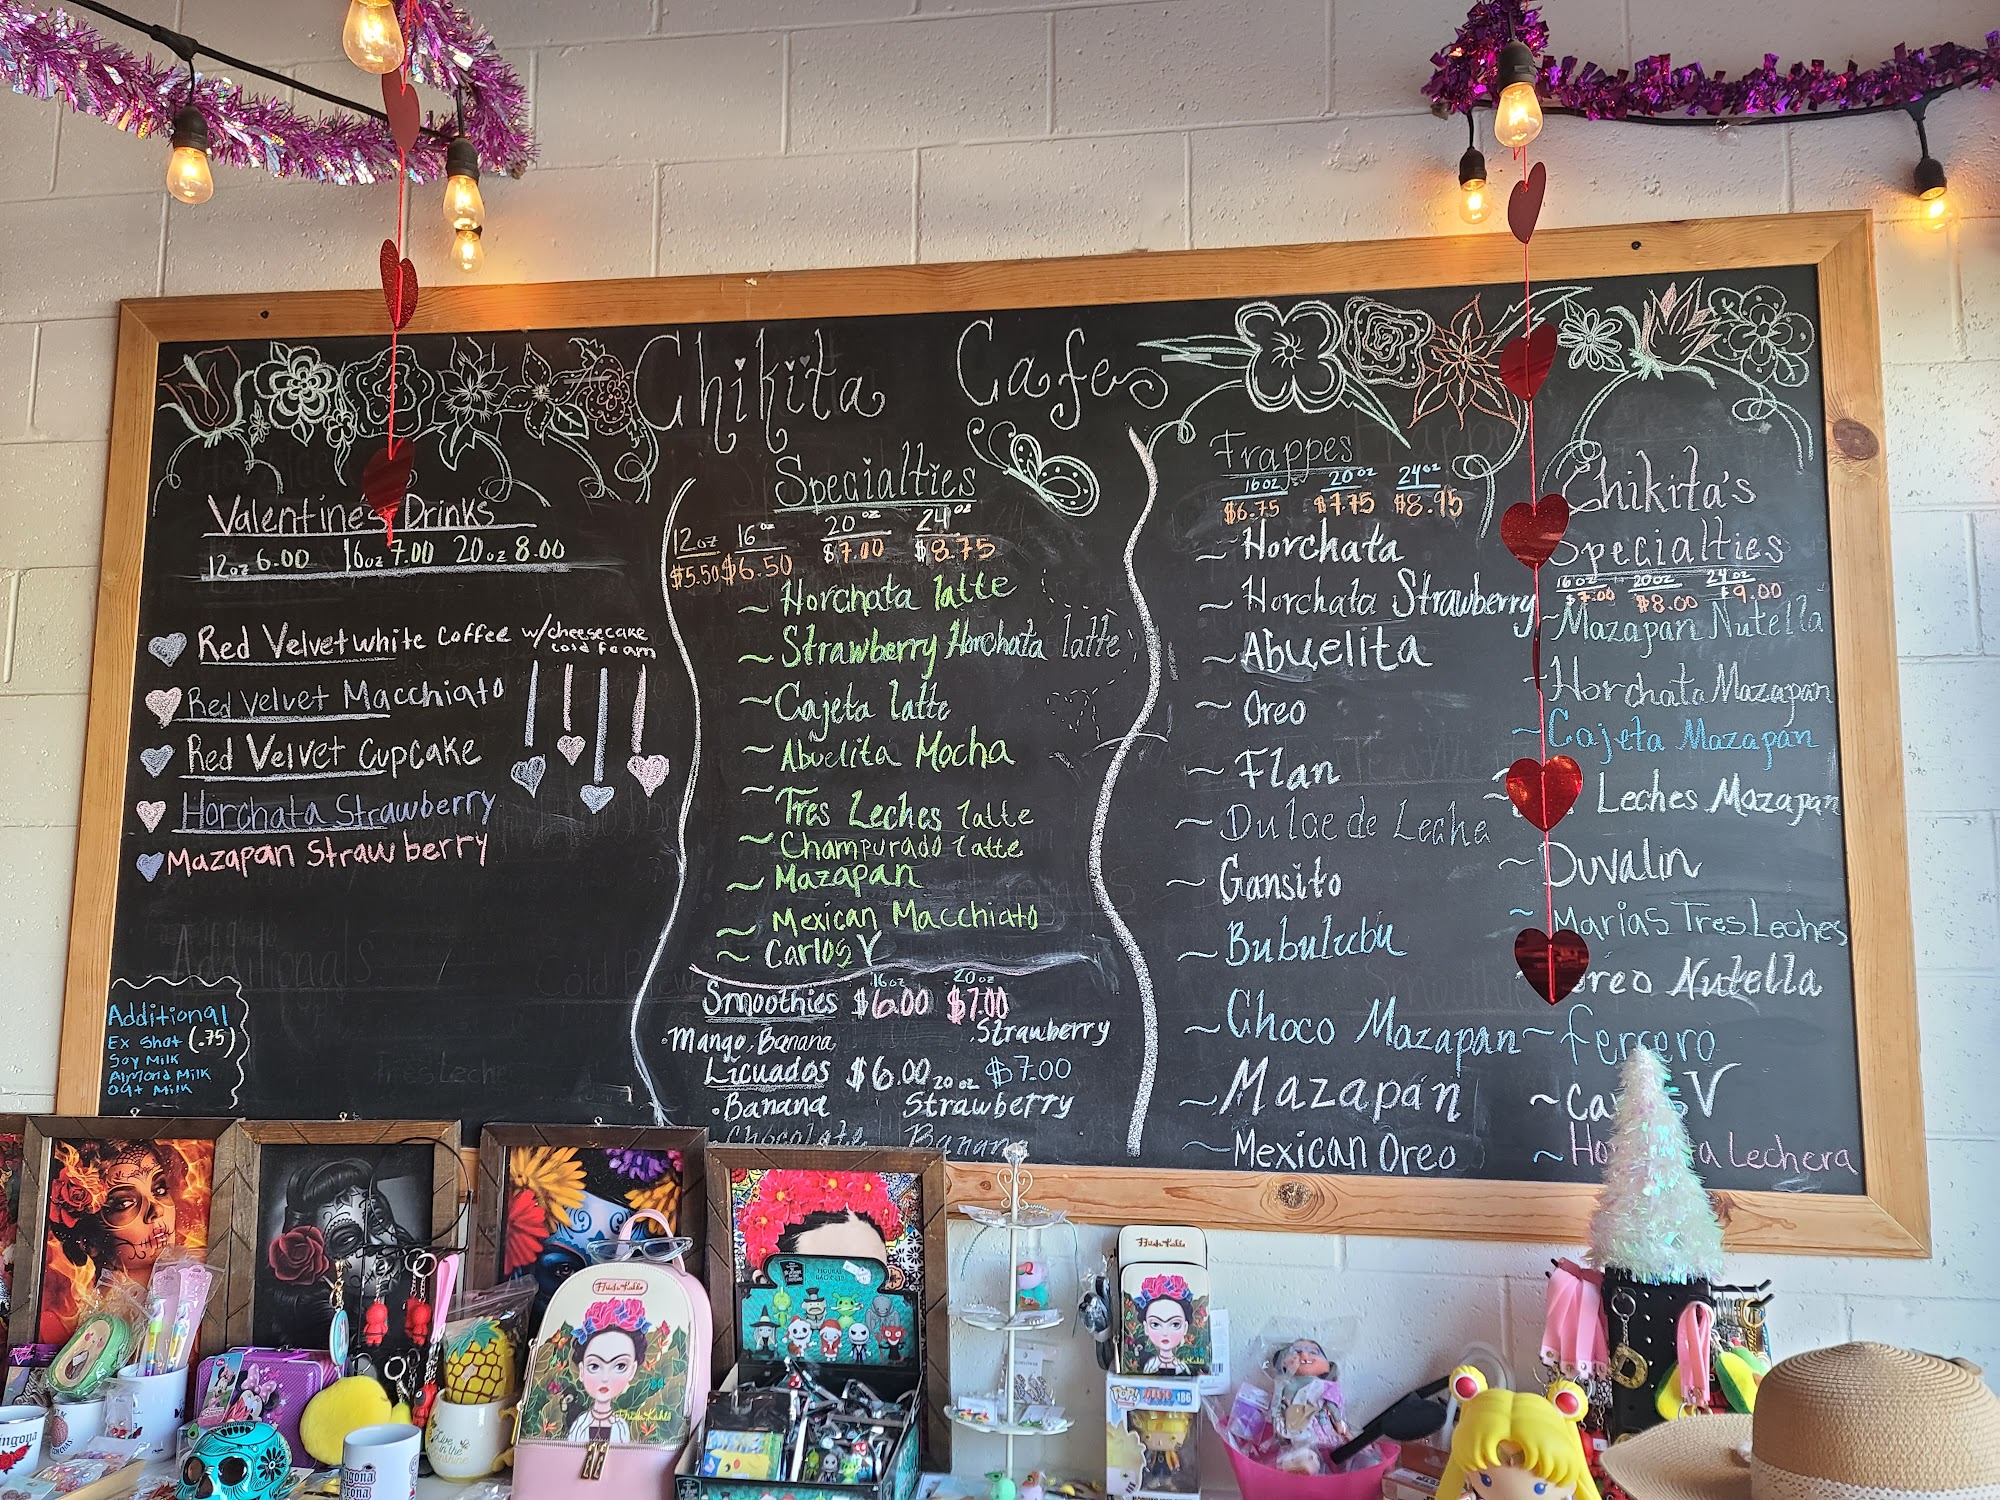 Chikita Cafe
Valentine's Drinks
12oz 6.00 16oz 7.00 20oz 8.00
Red Velvet white coffee w/cheesecake
cold foam
Red Velvet Macchiato
Red Velvet Cupcake
Horchata Strawberry
Mazapan Strawberry
Additional
Ex Shot (.75)
Soy Milk
Almond Milk
Oat Milk
Specialties
12oz 16oz 20oz 24oz
$5.50 $6.50 $7.00 $8.75
~ Horchata latte
~ Strawberry Horchata latte
~ Cajeta latte
~ Abuelita Mocha
~ Tres Leches latte
~ Champurado latte
~ Mazapan
~ Mexican Macchiato
~ Carlos V
16oz 20oz
Smoothies $6.00 $7.00
Mango, Banana Strawberry
Licuados $6.00 20oz $7.00
Banana Strawberry
Chocolate Banana
Frappes
16oz 20oz 24oz
$6.75 $7.75 $8.95
~ Horchata
~ Horchata Strawberry
~ Abuelita
~ Oreo
~ Flan
~ Dulce de Leche
~ Gansito
~ Bubulubu
~ Choco Mazapan
~ Mazapan
~ Mexican Oreo
Chikita's
Specialties
16oz 20oz 24oz
$7.00 $8.00 $9.00
~ Mazapan Nutella
~ Horchata Mazapan
~ Cajeta Mazapan
Leches Mazapan
~ Duvalin
~ Marias Tres Leches
Oreo Nutella
~ Ferrero
~ Ca V
~ Lechera
Frida Kahlo
Frida Kahlo
Frida Kahlo
POP!
186